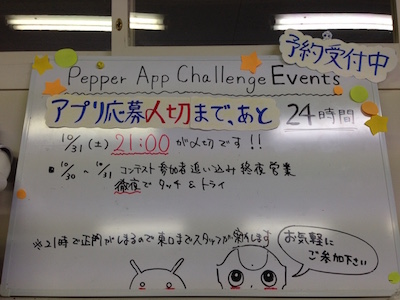 予約受付中
Pepper App Challenge Events
アプリ応募〆切まで、あと
24時間
10/31(土) 21:00が〆切です!!
10/30~10/31 コンテスト参加者追い込み終夜営業
徹夜でタッチ&トライ
※21時で正門がしまるので東口までスタッフが案内します
お気軽に
ご参加下さい